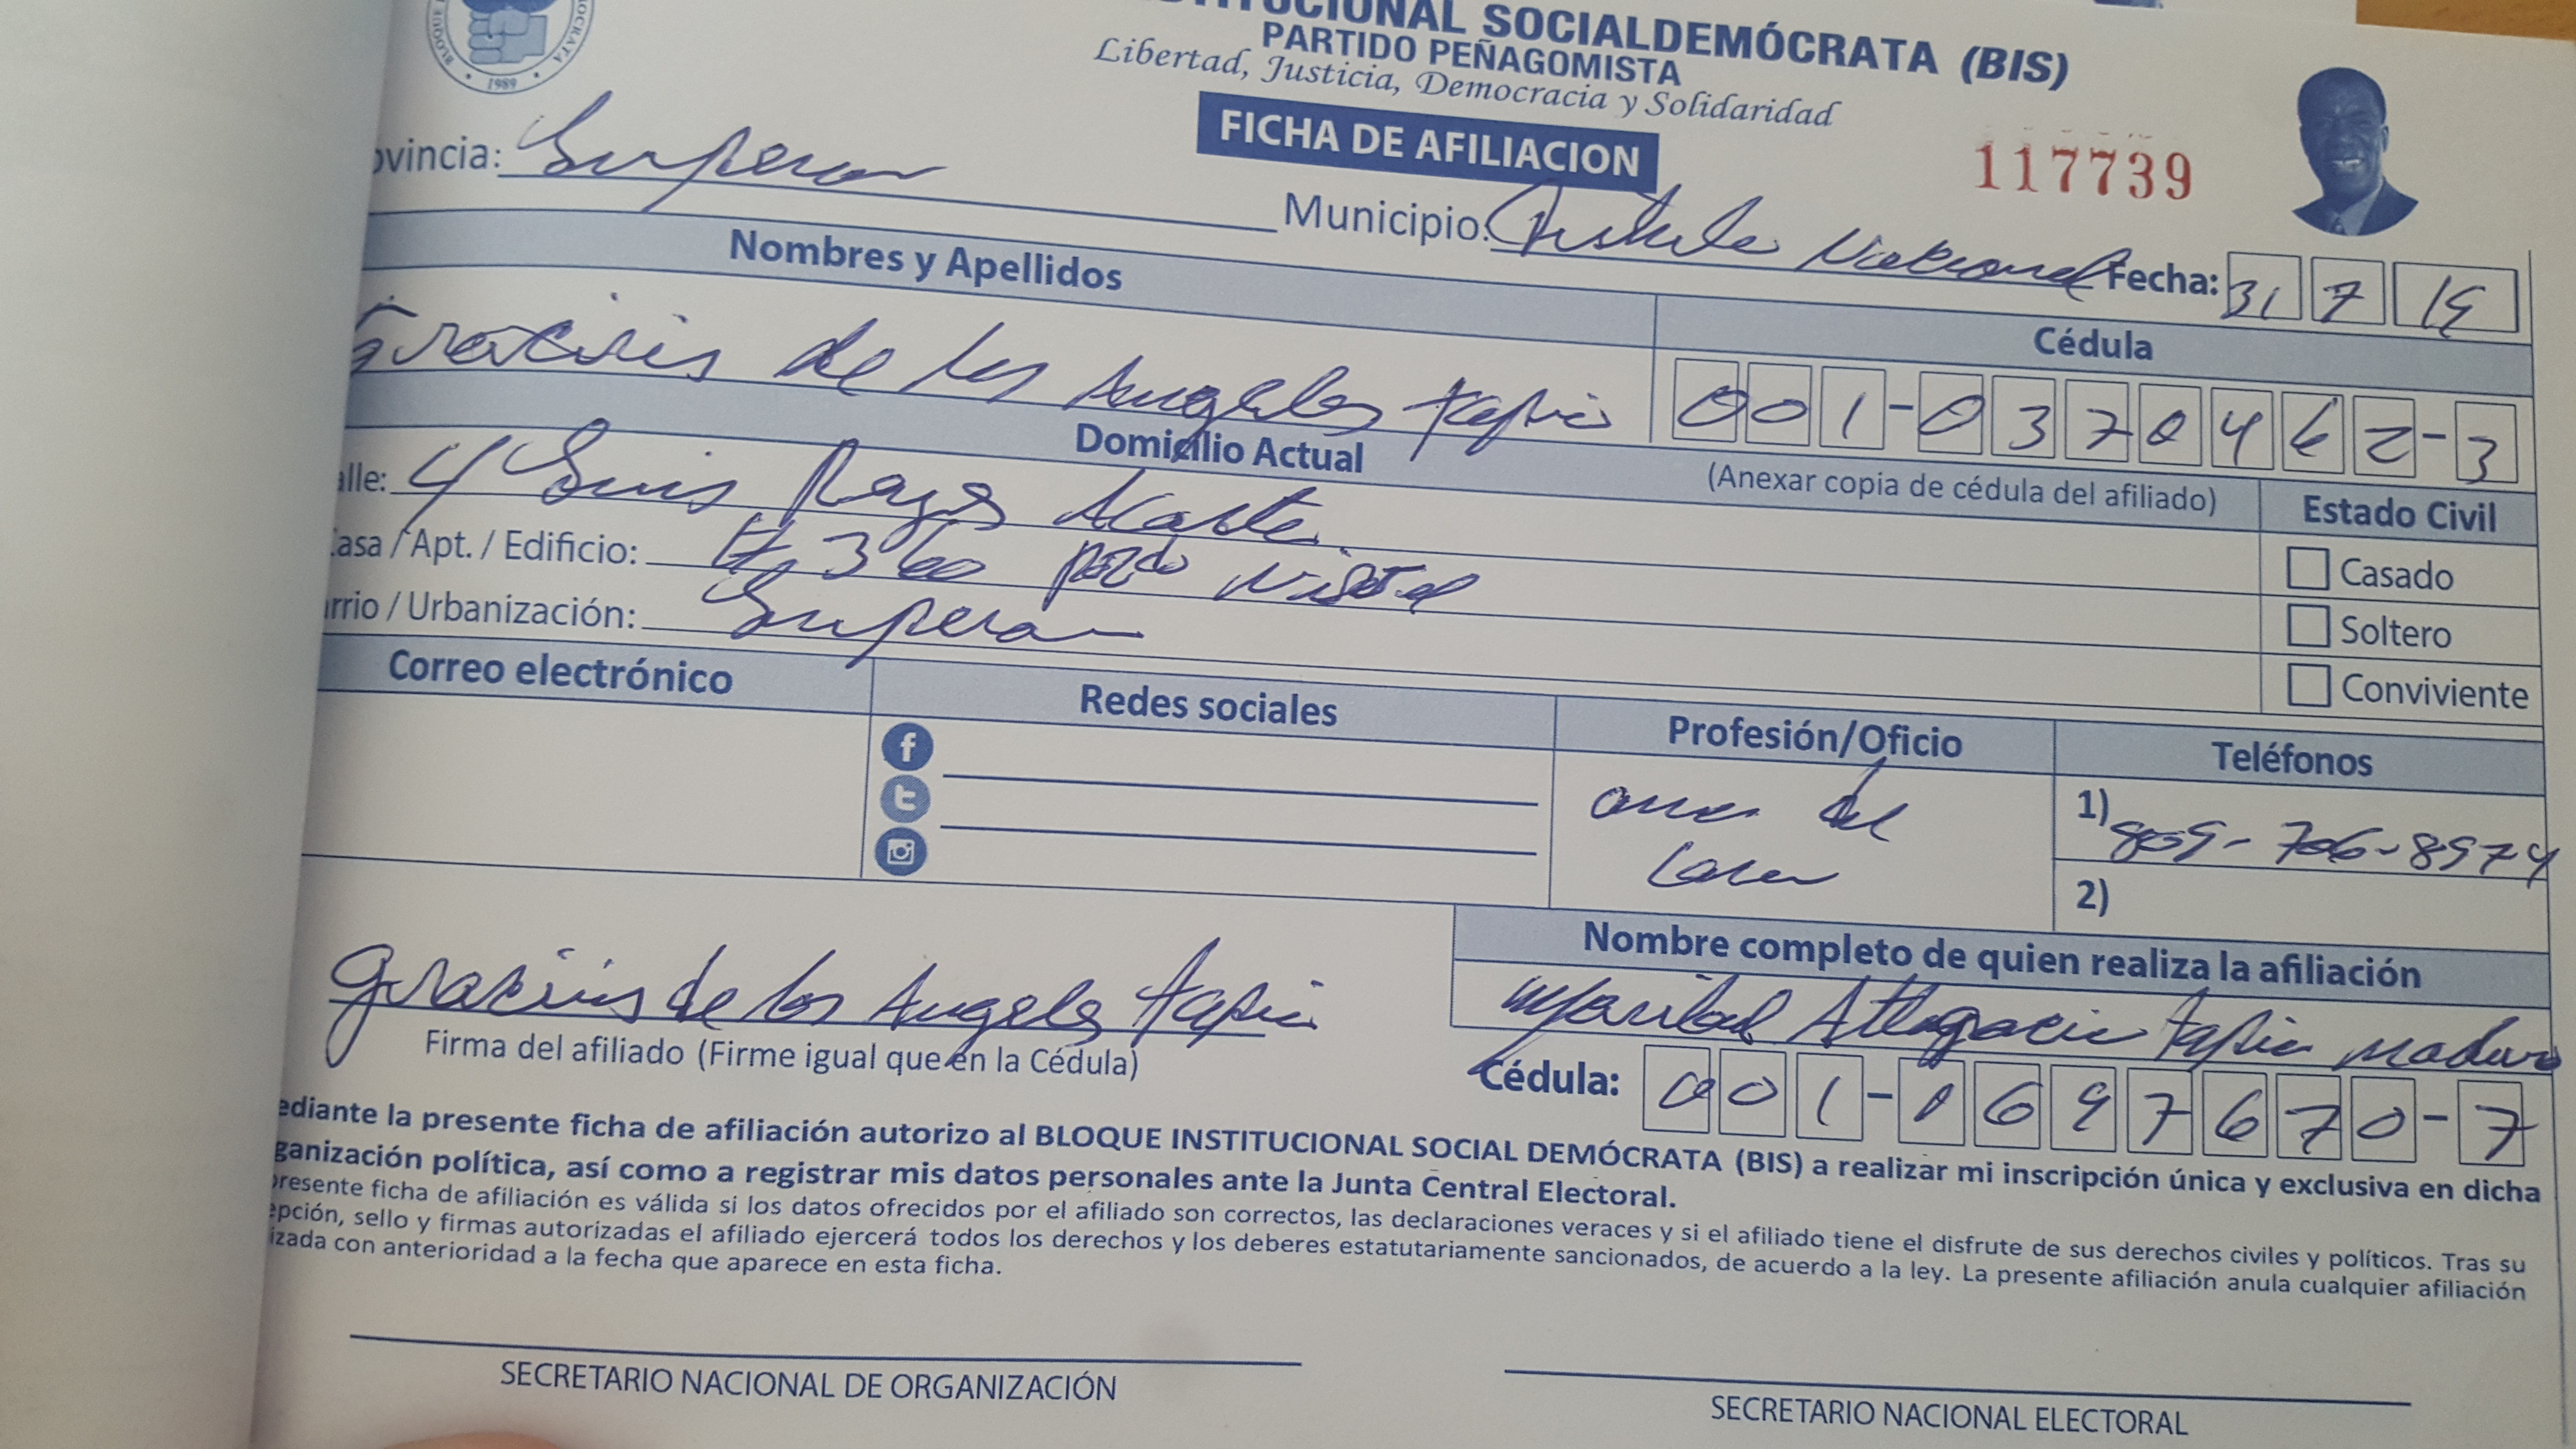 TITUCIONAL SOCIALDEMÓCRATA (BIS)
PARTIDO PEÑAGOMISTA
Libertad, Justicia, Democracia y Solidaridad
1989
FICHA DE AFILIACION
117739
ovincia:
Municipio: Nacional Fecha: 31 7 19
Nombres y Apellidos
Cédula
de los Angeles tapia 001-0370462-3
Domicilio Actual
(Anexar copia de cédula del afiliado)
alle: Luis
Estado Civil
Casa / Apt. / Edificio: # 360
Casado
arrio / Urbanización:
Soltero
Conviviente
Correo electrónico
Redes sociales
Profesión/Oficio
Teléfonos
ama del
1) 809-706-8974
2)
Nombre completo de quien realiza la afiliación
de los Angeles tapia
Maribel Altagracia tapia maduro
Firma del afiliado (Firme igual que en la Cédula)
Cédula: 001-1697670-7
ediante la presente ficha de afiliación autorizo al BLOQUE INSTITUCIONAL SOCIAL DEMÓCRATA (BIS) a realizar mi inscripción única y exclusiva en dicha
ganización política, así como a registrar mis datos personales ante la Junta Central Electoral.
presente ficha de afiliación es válida si los datos ofrecidos por el afiliado son correctos, las declaraciones veraces y si el afiliado tiene el disfrute de sus derechos civiles y políticos. Tras su
epción, sello y firmas autorizadas el afiliado ejercerá todos los derechos y los deberes estatutariamente sancionados, de acuerdo a la ley. La presente afiliación anula cualquier afiliación
izada con anterioridad a la fecha que aparece en esta ficha.
SECRETARIO NACIONAL DE ORGANIZACIÓN
SECRETARIO NACIONAL ELECTORAL